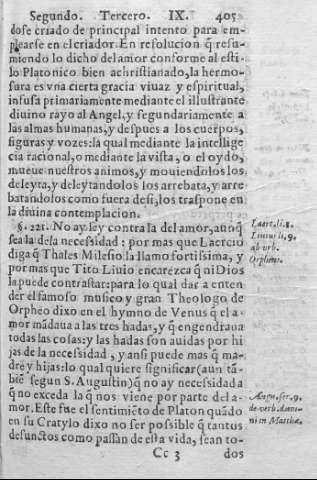 Segundo. Tercero. IX. 405
dose criado de principal intento para em-
plearse en el criador. En resolucion q̃ resu-
miendo lo dicho del amor conforme al esti-
lo Platonico bien achristianado, la hermo-
sura es vna cierta gracia viuaz y espiritual,
infusa primariamente mediante el illustrante
diuino rayo al Angel, y segundariamente a
las almas humanas, y despues a los cuerpos,
figuras y vozes: la qual mediante la intellige
cia racional, o mediante la vista, o el oydo,
mueue nuestros animos, y mouiendolos los
deleyta, y deleytandolos los arrebata, y arre
batandolos como fuera de si, los traspone en
la diuina contemplacion.
§. 221. No ay ley contra la del amor, aunq̃
sea la dela necessidad: por mas que Laercio
diga q̃ Thales Milesio la llamo fortissima, y
por mas que Tito Liuio encarezca q̃ ni Dios
la puede contrastar: para lo qual dar a enten
der el famoso musico y gran Theologo de
Orpheo dixo en el hymno de Venus q̃ el a-
mor mãdaua a las tres hadas, y q̃ engendraua
todas las cosas: y las hadas son auidas por hi
jas de la necessidad, y ansi puede mas q̃ ma-
dre y hijas: lo qual quiere significar (aun tã-
biẽ segun S. Augustin) q̃ no ay necessidad a
q̃ no exceda la q̃ nos viene por parte del a-
mor. Este fue el sentimiẽto de Platon quãdo
en su Cratylo dixo no ser possible q̃ tantos
defunctos como passan de esta vida, sean to-
Cc 3 dos
Laert. li. 1.
Liuius li. 9.
ab vrb.
Orpheus.
Augu. ser. 9.
de verb. Domi-
ni in Matthæ.